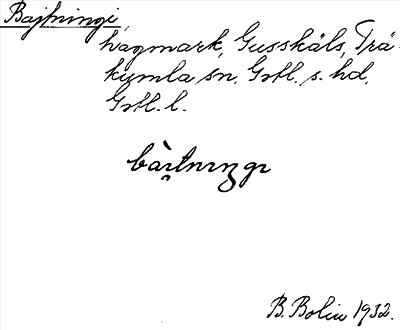 Bajtningi,
hagmark, Gusskäls, Trä-
kumla sn. Gotl. s. hd,
Gotl. l.
bàı̯tnıŋgı
B. Bolin 1932.